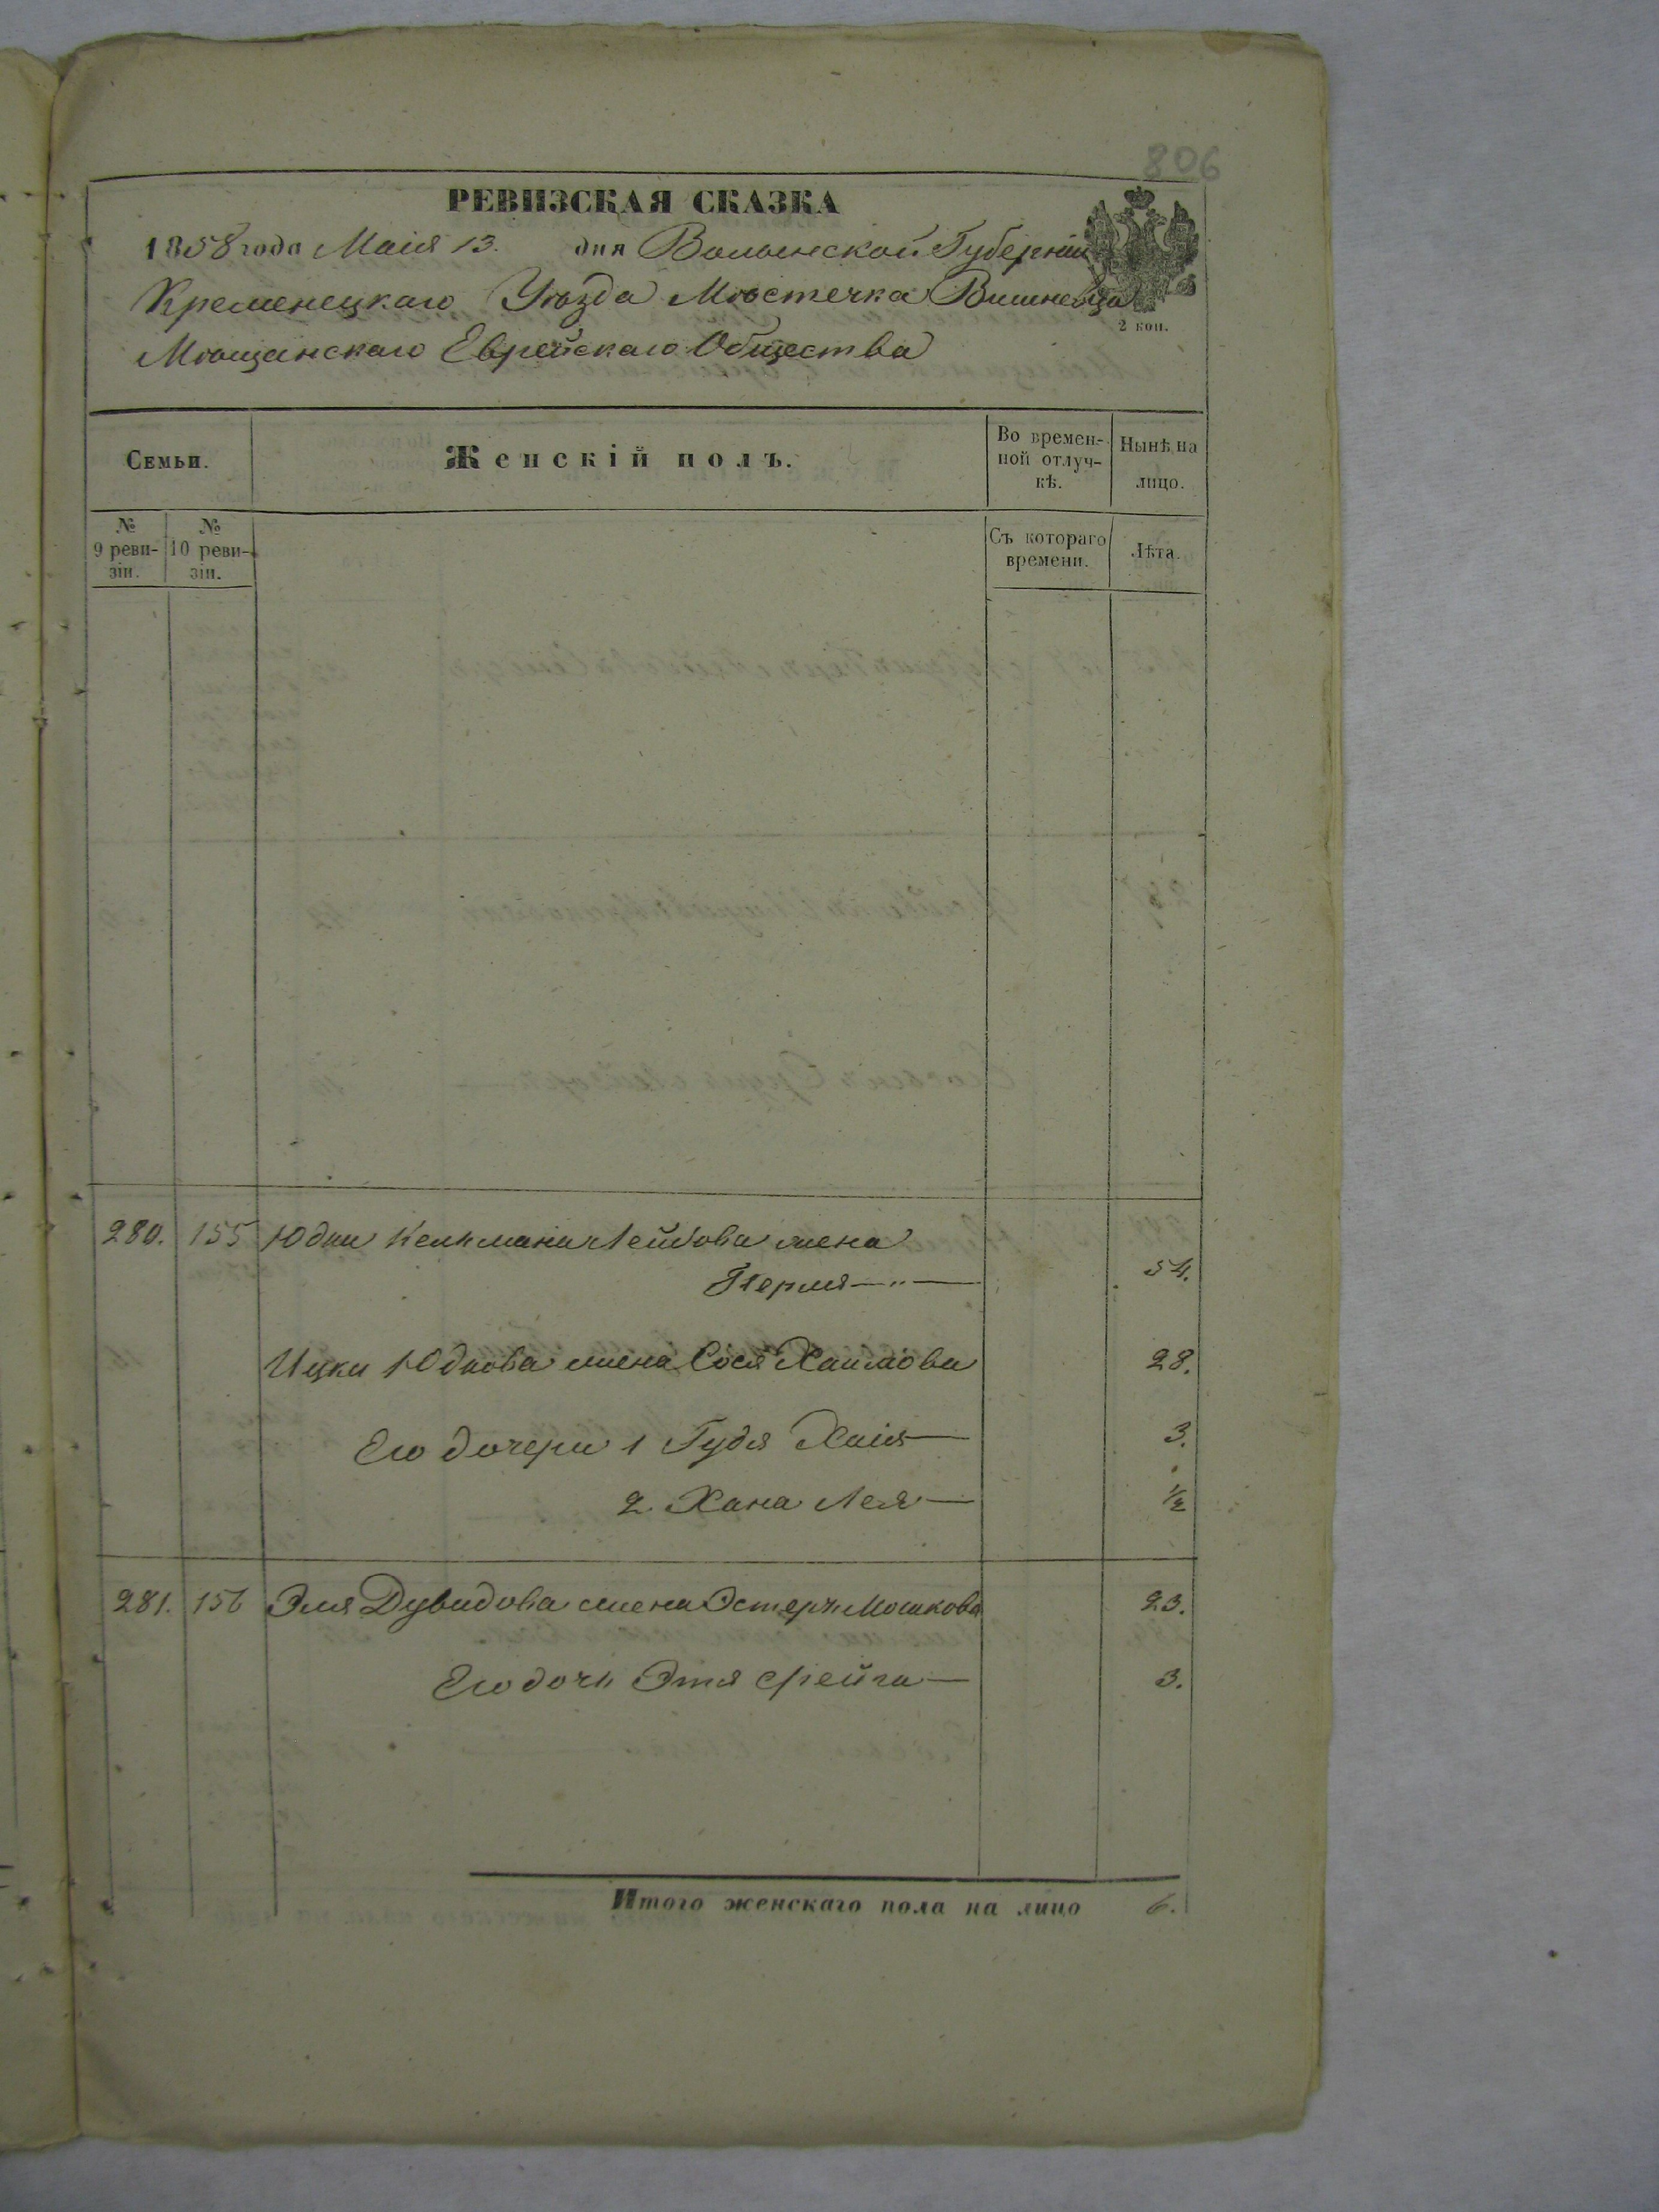 806
РЕВИЗСКАЯ СКАЗКА
1858 года Маія 13. дня Волынской Губерніи
Кременецкаго Уѣзда Мѣстечка Вишневца
2 коп.
Мѣщанскаго Еврейскаго Общества
Семьи. Женскій полъ. Во времен- Нынѣ на
ной отлуч- лицо.
кѣ.
№ № Съ котораго Лѣта.
9 реви- 10 реви- времени.
зіи. зіи.
280. 155 Юдки Кельмана Лейбова жена
Перля — " — 54.
Ицки Юдкова жена Сося Хаимова 28.
Его дочери 1 Гудя Хаія — 3.
2. Хана Лея — ½
281. 156 Эля Дувидова жена Эстеръ Мошкова 23.
Его дочь Этя Фейга — 3.
Итого женскаго пола на лицо 6.